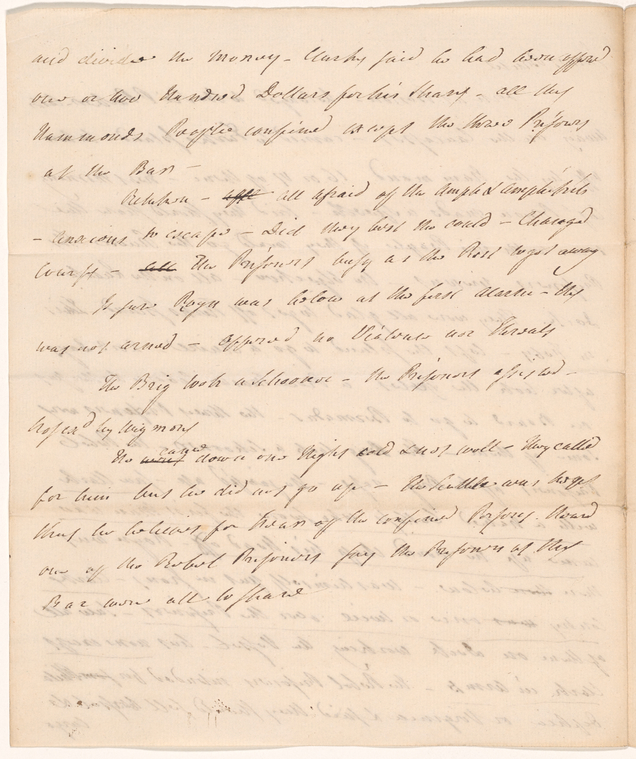 and divide the Money - Clarke said he had been offered
one or two Hundred Dollars for his Share - all the
Hammonds People confined except the three Prisoners
at the Bar -
all afraid of the
- anxious to escape - Did they best the could - Changed
Course - all The Prisoners busy as the Rest to get away
Ryan was below at the first alarm - they
was not armed - offered no Violence nor Threats
The Brig took a Schooner - the Prisoners assisted -
by
He came down one Night cold & not well - They called
for him but he did not go up - the Scuttle was kept
thus he believes for Fear of the confined Persons. Heard
one of the Rebel Prisoners say the Prisoners at the
Bar were all to share